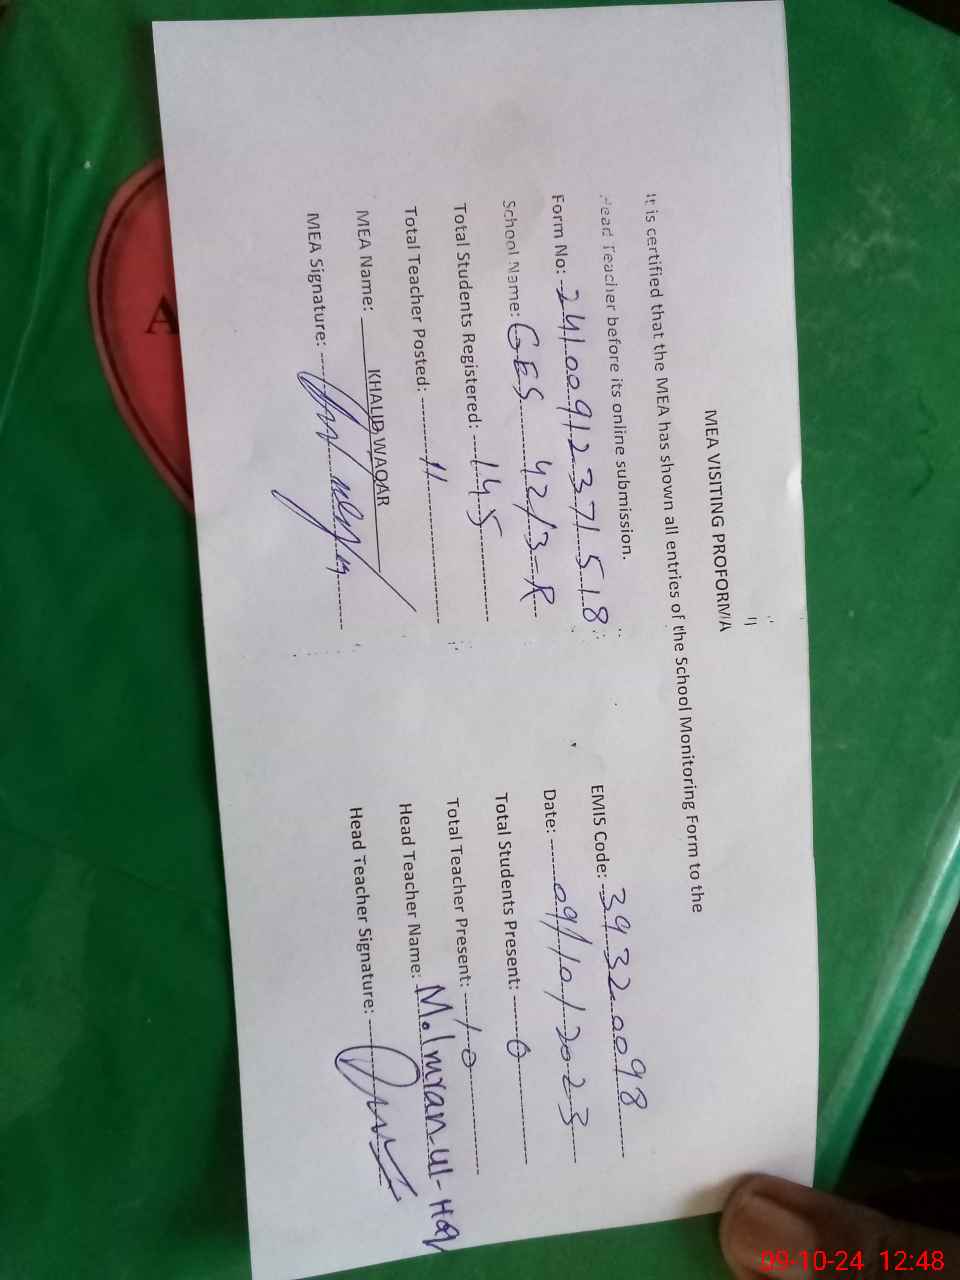 MEA VISITING PROFORMA
It is certified that the MEA has shown all entries of the School Monitoring Form to the
Head Teacher before its online submission.
Form No: 24100912371518 EMIS Code: 39320098
School Name: GES 42/3-R Date: 09/10/2023
Total Students Registered: 145 Total Students Present: 0
Total Teacher Posted: 11 Total Teacher Present: 10
MEA Name: KHALID WAQAR Head Teacher Name: M.Imran ul-Haq
MEA Signature: Head Teacher Signature:
A
09-10-24 12:48